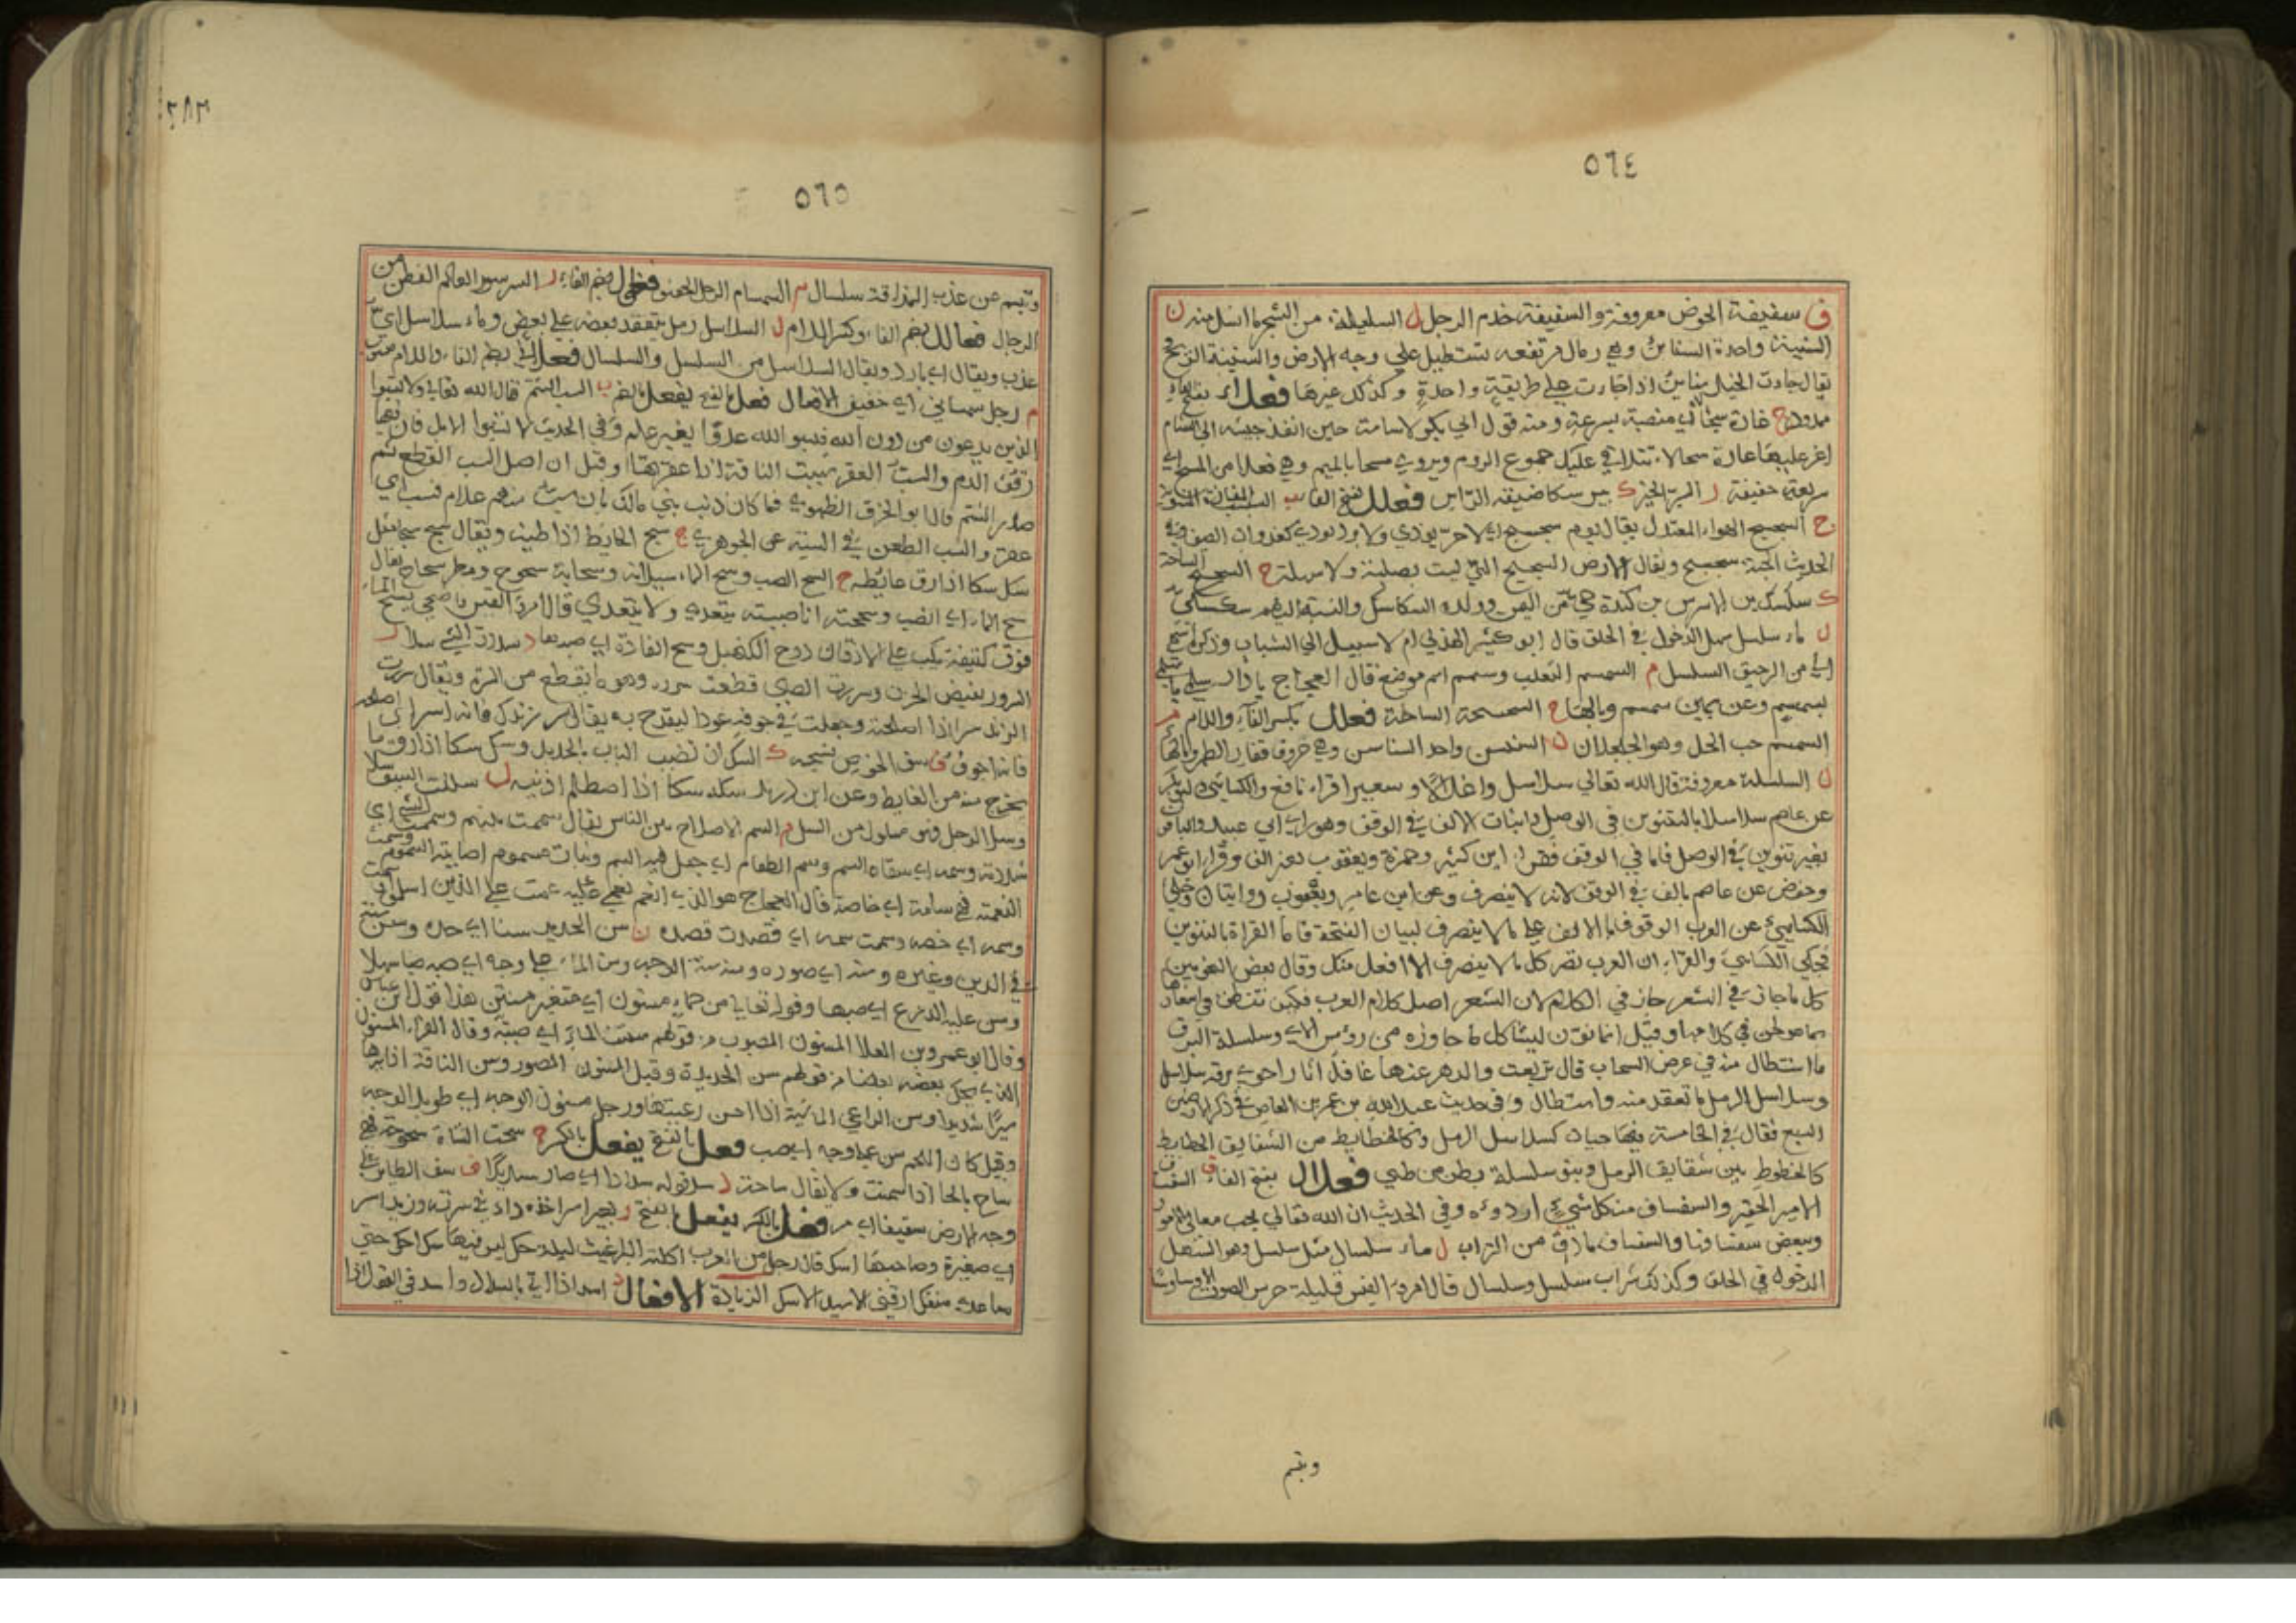 ٥٦٤
ف سفيفة الخوض معروفة والسفيفة خدم الرجل ل السليلة من الشجر ما انسل منه ن
السنينة واحدة السنائن وهي رمال مرتفعه تستطيل على وجه الارض والسنينة الريح
يقال جاءت الخيل سنائن اذا جاءت على طريقة واحدة وكذلك غيرها فعلاء بفتح الفاء
ممدود ح غارة سحا اي منصبة بسرعة ومنه قول ابي بكر لاسامة حين انفذ جيشه الى الشام
اغر عليهم غارة سحاء تتلاقى عليك جموع الروم ويروى مسحا بالميم وهي فعلا من المسح اي
سريعة خفيفة ر السرا الخير ك بير سكا ضيقه الراس فعلل بفتح الفاء ب السبسب المفازة المستوية
ج السجسج الهواء المعتدل يقال يوم سجسج اي لا حر يوذي ولا برد يوذي كغدوات الصيف وفي
الحديث الجنة سجسج ويقال الارض السجسج التي ليست بصلبة ولا سهلة ح السحسح الساحة
ك سكسك بن اشرس بن كندة حي من اليمن وولده السكاسك والنسبة اليهم سكسكي
ل ماء سلسل سهل الدخول في الحلق قال ابو كبير الهذلي ام لا سبيل الى الشباب وذكره اشهى
الي من الرحيق السلسل م السمسم الثعلب وسمسم اسم موضع قال العجاج يا دار سلمى يا اسلمي
بسمسم وعن يمين سمسم وبالهاء ح السحسحة الساحة فعلل بكسر الفاء واللام م
السمسم حب الحل وهو الجلجلان ن السنسن واحد السناسن وهي حروف فقار الظهر وبالهاء
ل السلسلة معروفة قال الله تعالى سلاسل واغلالا وسعيرا قراء نافع والكسائي وابو بكر
عن عاصم سلاسلا بالتنوين في الوصل واثبات الالف في الوقف وهو راي ابي عبيد والباقون
بغير تنوين في الوصل فاما في الوقف فقرا ابن كثير وحمزة ويعقوب بغير الف وقرا ابو عمر
وحفص عن عاصم بالف في الوقف لانه لا ينصرف وعن ابن عامر ويعقوب روايتان وحكى
الكسائي عن العرب الوقوف بالالف على ما لا ينصرف لبيان الفتحة فاما القراة بالتنوين
فحكى الكسائي والفراء ان العرب تصرف كل ما لا ينصرف الا افعل منك وقال بعض النحويين
كل ما جاز في الشعر جاز في الكلام لان الشعر اصل كلام العرب فكيف
في كلامها وقيل انما نون ليشاكل ما جاوزه من رؤس الاي وسلسلة البرق
ما استطال منه في عرض السحاب قال تربعت والدهر عنها غافل اثارا حوى برقه سلاسل
وسلاسل الرمل ما تعقد منه واستطال وفي حديث عبد الله بن عمرو بن العاص في ذكر الارضين
السبع فقال في الخامسة فيها حيات كسلاسل الرمل وكالخطايط من الشقايق الخطايط
كالخطوط بين شقايق الرمل وبنو سلسلة بطن من طيي فعلال بفتح الفاء ف السفساف
الامر الحقير والسفساف من كل شيء اردوءه وفي الحديث ان الله تعالى يحب معالي الامور
ويبغض سفسافها والسفساف ما دق من التراب ل ماء سلسال مثل سلسل وهو السهل
الدخول في الحلق وكذلك شراب سلسل وسلسال قال امرؤ القيس قليلة جرس الصوت الا وساوسا
وتبسم
٢٨٣
٥٦٥
وتبسم عن عذب المذاقة سلسال م السمسام الرجل الخفيف فعلول بضم الفاء ر السرسور العالم الفطن من
الرجال فعالل بضم الفاء وكسر اللام ل السلاسل رمل يتعقد بعضه على بعض وماء سلاسل اي
عذب ويقال اي بارد ويقال السلاسل من السلسل والسلسال فعللاني بضم الفاء واللام
م رجل سمسماني اي خفيف الافعال فعل بالفتح يفعل بالضم ب السب الشتم قال الله تعالى ولا تسبوا
الذين يدعون من دون الله فيسبوا الله عدوا بغير علم وفي الحديث لا تسبوا الابل فان فيها
رقوء الدم والسب العقر سببت الناقة اذا عقرتها وقيل ان اصل السب القطع ثم
صار الشتم قال ابو الخرق الطهوي فما كان ذنب بني مالك بان سب منهم غلام فسب اي
عقر والسب الطعن في السبة عن الجوهري ج سج الحايط اذا طينه ويقال سج سجا مثل
سك سكا اذا رق غائطه ح السح الصب وسح الماء سيلانه وسحابة سحوح ومطر سحاح يقال
سح الماء اي انصب وسححته انا صببته يتعدى ولا يتعدى قال امرؤ القيس فاضحى يسح الماء
فوق كتيفة يكب على الاذقان دوح الكنهبل وسح الغارة اي صبها ر سررت الشيء
السرور نقيض الحزن وسررت الصبي قطعت سرره وهو ما يقطع من السرة ويقال سررت
الزند سرا اذا اصلحته وجعلت في جوفه عودا ليقدح به يقال سر زندك فانه اسر اي
فانه اجوف ف سف الخوص نسجه ك السك ان تضبب الباب بالحديد وسك سكا اذا رق ما
يخرج منه من الغايط وعن ابن دريد سكه سكا اذا اصطلم اذنيه ل سللت السيف سلا
وسل الرجل فهو مسلول من السل م السم الاصلاح بين الناس يقال سممت بينهم وسممت الشيء اي
شددته وسمه اي سقاه السم وسم الطعام اي جعل فيه السم ونبات مسموم اصابته السموم وسمت
النعمة فهي سامة اي خاصة قال العجاج هو الذي انعم نعمى عمت على الذين اسلموا وسمت
وسمه اي خصه وسمت سمه اي قصدت قصده ن سن الحديد سنا اي حده وسن سنة
في الدين وغيره وسنه اي صوره ومنه سنة الوجه وسن الماء على وجه اي صبه صبا سهلا
وسن عليه الدرع اي صبها وقوله تعالى من حماء مسنون اي متغير منتن هذا قول ابن عباس
وقال ابو عمرو بن العلا المسنون المصبوب من قولهم سننت الماء اي صببته وقال الفراء المسنون
الذي يحك بعضه بعضا من قولهم سن الحديدة وقيل المسنون المصور وسن الناقة اذا سارها
سيرا شديدا وسن الراعي الماشية اذا احسن رعيتها ورجل مسنون الوجه اي طويل الوجه
وقيل كان اللحم سن على وجه اي صب فعل بالفتح يفعل بالكسر ح سحت الشاة سحوحة فهي
ساح بالحاء اذا سمنت ولا يقال ساحة د سد قوله سدادا اي صار سديدا ف سف الطاير على
وجه الارض سفيفا اي مر فعل بالكسر يفعل بالفتح ر بعير اسر اخذه داء في سرته وزند اسر
اي صغيرة وصاحبها اسك قال رجل من العرب اكلته البراغيث ليلة حك ليس فيها سكا احك حتى
ساعدي منفك ارقني الاسيد الاسك الزيادة الافعال د اسد اذا اتى بالسداد واسد في القول اذا